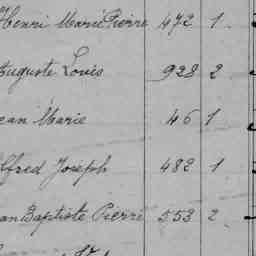 Henri Marie Pierre 472 1
Auguste Louis 928 2
ean Marie 46 1
lfred Joseph 482 1
an Baptiste Pierre 553 2